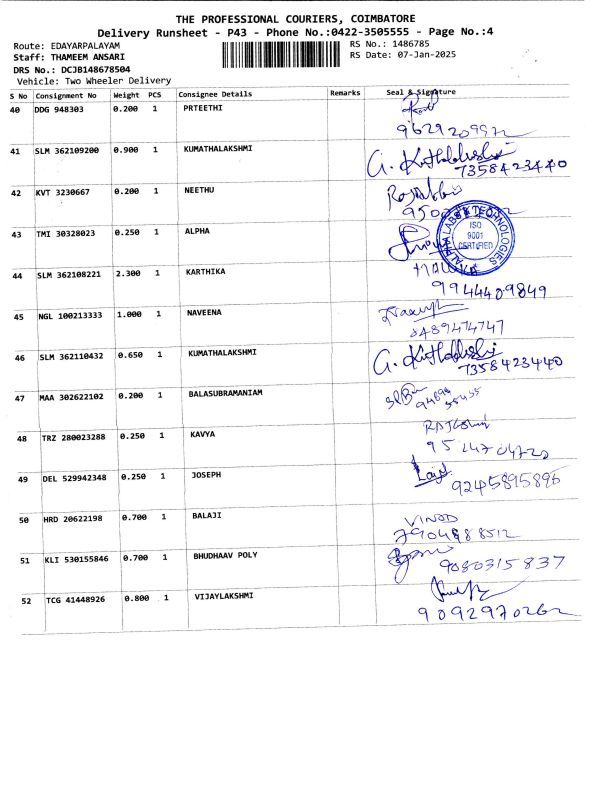 THE PROFESSIONAL COURIERS, COIMBATORE
Delivery Runsheet - P43 - Phone No.:0422-3505555 - Page No.:4
Route: EDAYARPALAYAM RS No.: 1486785
Staff: THAMEEM ANSARI RS Date: 07-Jan-2025
DRS No.: DCJB148678504
Vehicle: Two Wheeler Delivery
S No Consignment No Weight PCS Consignee Details Remarks Seal & Signature
40 DDG 948303 0.200 1 PRTEETHI
41 SLM 362109200 0.900 1 KUMATHALAKSHMI
7358423440
42 KVT 3230667 0.200 1 NEETHU
43 TMI 30328023 0.250 1 ALPHA
ALPHA LABS & TECHNOLOGIES
ISO
9001
CERTIFIED
44 SLM 362108221 2.300 1 KARTHIKA
9944409849
45 NGL 100213333 1.000 1 NAVEENA
8489474747
46 SLM 362110432 0.650 1 KUMATHALAKSHMI
7358423440
47 MAA 302622102 0.200 1 BALASUBRAMANIAM
48 TRZ 280023288 0.250 1 KAVYA
49 DEL 529942348 0.250 1 JOSEPH
9245895896
50 HRD 20622198 0.700 1 BALAJI
VINOD
7904888512
51 KLI 530155846 0.700 1 BHUDHAAV POLY
9080315837
52 TCG 41448926 0.800 1 VIJAYLAKSHMI
9092970262